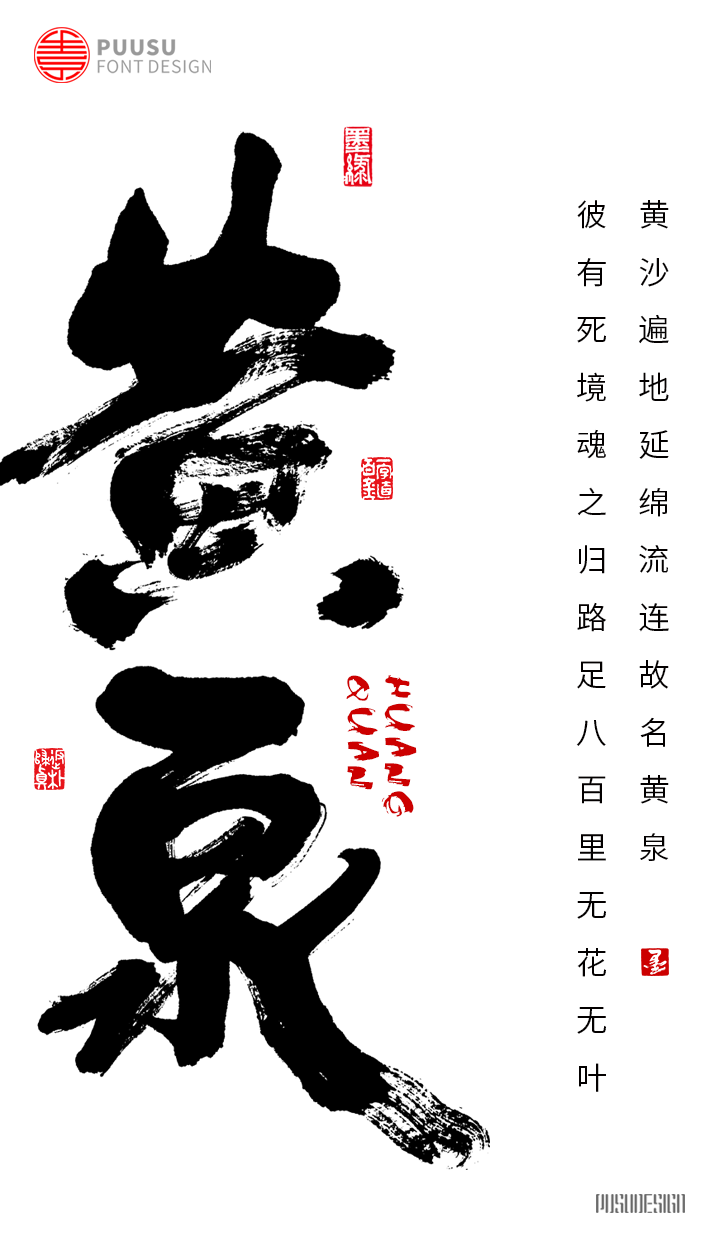 PUUSU
FONT DESIGN
黄泉
HUANG
QUAN
黄沙遍地延绵流连故名黄泉
彼有死境魂之归路足八百里无花无叶
墨
墨缘
PUSUDESIGN